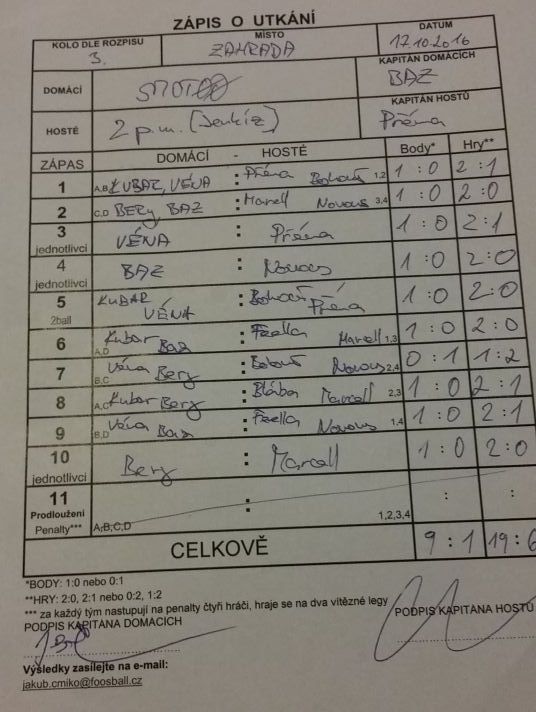 ZÁPIS O UTKÁNÍ
KOLO DLE ROZPISU MÍSTO DATUM
3. ZAHRADA 17.10.2016
DOMÁCÍ KAPITÁN DOMÁCÍCH
BAZ
HOSTÉ 2 p.m. KAPITÁN HOSTŮ
Přéma
ZÁPAS DOMÁCÍ - HOSTÉ Body* Hry**
1 A,B KUBAR, VÉNA : Přéma Bohouš 1,2 1:0 2:1
2 C,D BERY BAZ : Marcell Novous 3,4 1:0 2:0
3 jednotlivci VÉNA : Přéma 1:0 2:1
4 jednotlivci BAZ : Novous 1:0 2:0
5 2ball KUBAR VÉNA : Bohouš Přéma 1:0 2:0
6 A,D Kubar Baz : Marcell 1,3 1:0 2:0
7 B,C Véna Bery : Bohouš Novous 2,4 0:1 1:2
8 A,C Kubar Bery : Marcell 2,3 1:0 2:1
9 B,D Véna Baz : Novous 1,4 1:0 2:1
10 jednotlivci Bery : Marcell 1:0 2:0
11 : : :
Prodloužení
Penalty*** A,B,C,D 1,2,3,4
CELKOVĚ 9:1 19:6
*BODY: 1:0 nebo 0:1
**HRY: 2:0, 2:1 nebo 0:2, 1:2
*** za každý tým nastupují na penalty čtyři hráči, hraje se na dva vítězné legy
PODPIS KAPITÁNA DOMÁCÍCH PODPIS KAPITÁNA HOSTŮ
Výsledky zasílejte na e-mail:
jakub.cmiko@foosball.cz